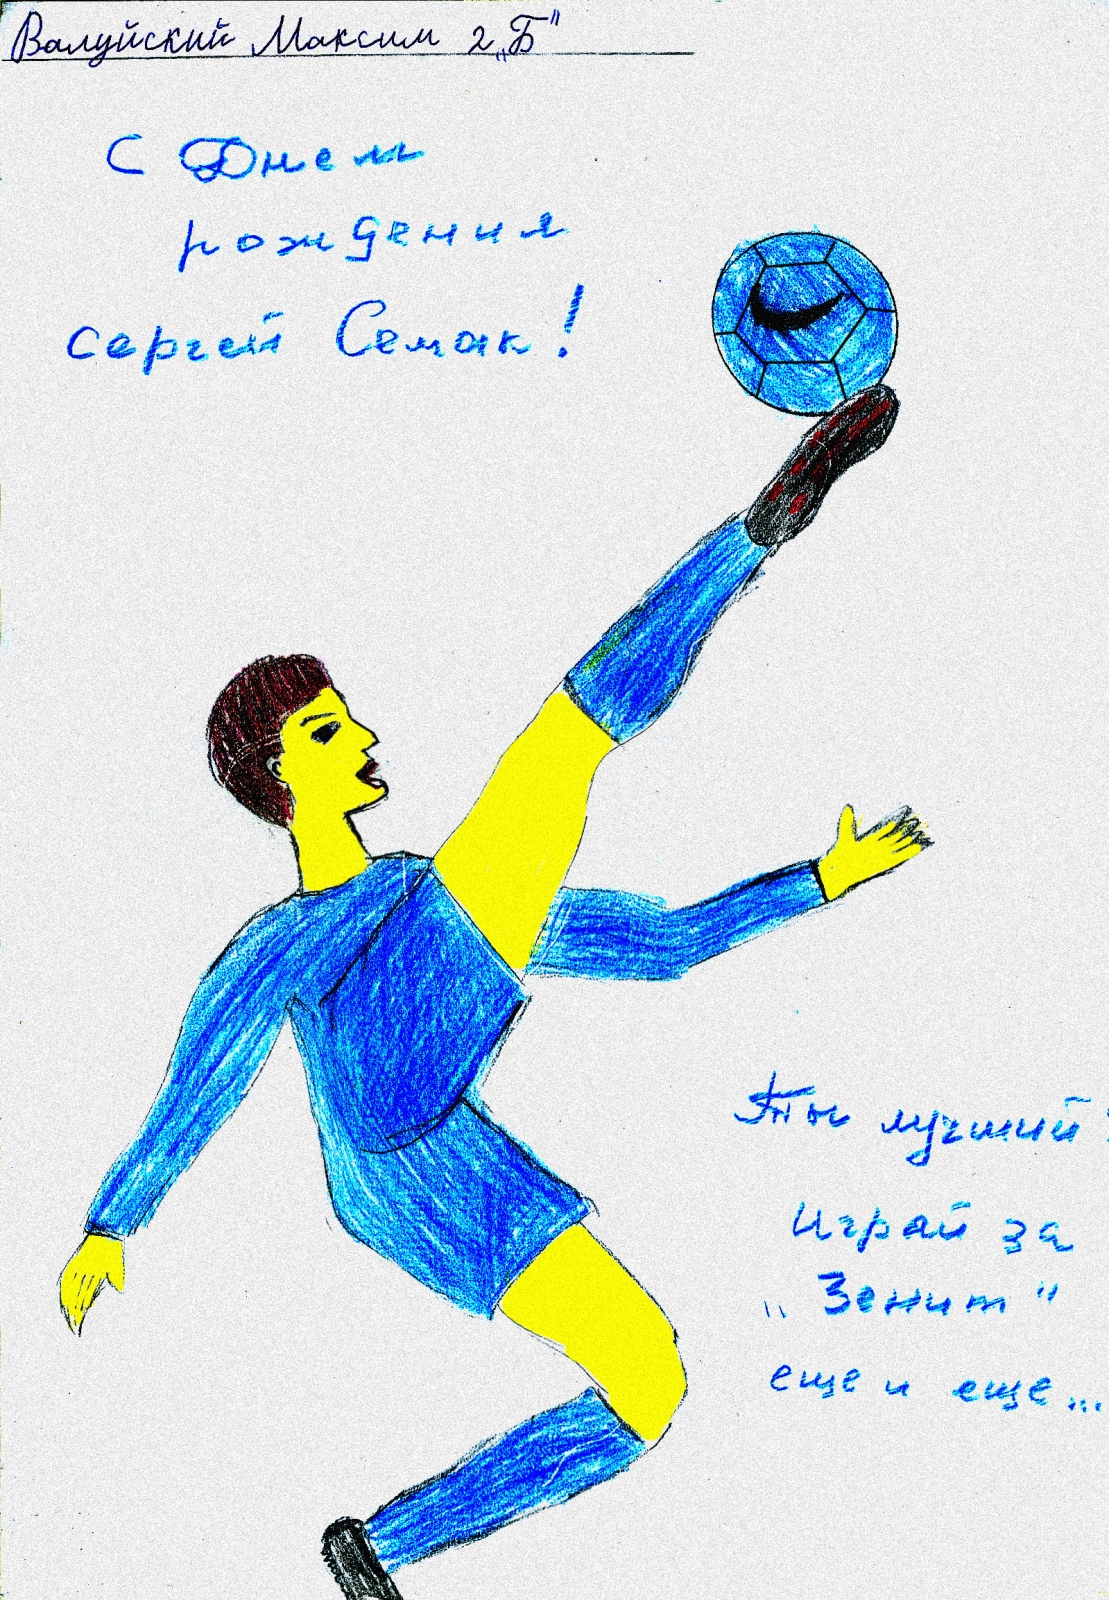 Валуйский Максим 2 „Б"
С Днем
рождения
сергей Семак!
Ты лучший!
Играй за
„Зенит"
еще и еще...